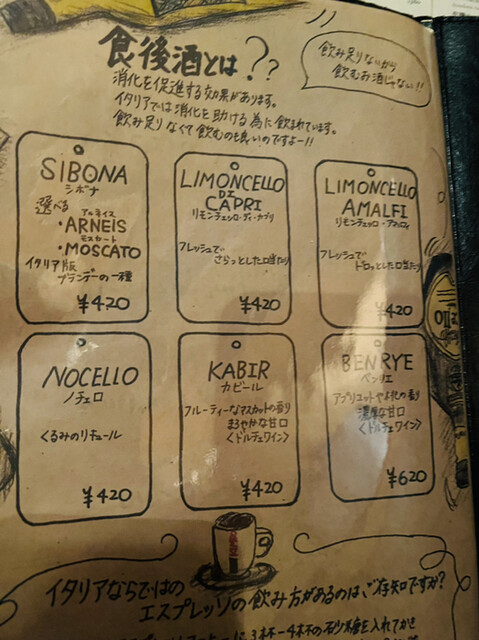 食後酒とは??
飲み足りないから
飲むお酒じゃない!!
消化を促進する効果があります。
イタリアでは消化を助ける為に飲まれています。
飲み足りなくて飲むのも良いのですよー!!
SIBONA
シボナ
選べる
アルネイス
・ARNEIS
モスカート
・MOSCATO
イタリア版
ブランデーの一種
¥420
LIMONCELLO
DI
CAPRI
リモンチェッロ・ディ・カプリ
フレッシュで
さらっとした口当たり
¥420
LIMONCELLO
AMALFI
リモンチェッロ・アマルフィ
フレッシュで
トロッとした口当たり
¥420
NOCELLO
ノチェロ
くるみのリキュール
¥420
KABIR
カビール
フルーティーなマスカットの香り
まろやかな甘口
〈ドルチェワイン〉
¥420
BEN RYE
ベンリエ
アプリコットやお花の香り
濃厚な甘口
〈ドルチェワイン〉
¥620
イタリアならではの
エスプレッソの飲み方があるのはご存知ですか?
3杯〜4杯の砂糖を入れてかき